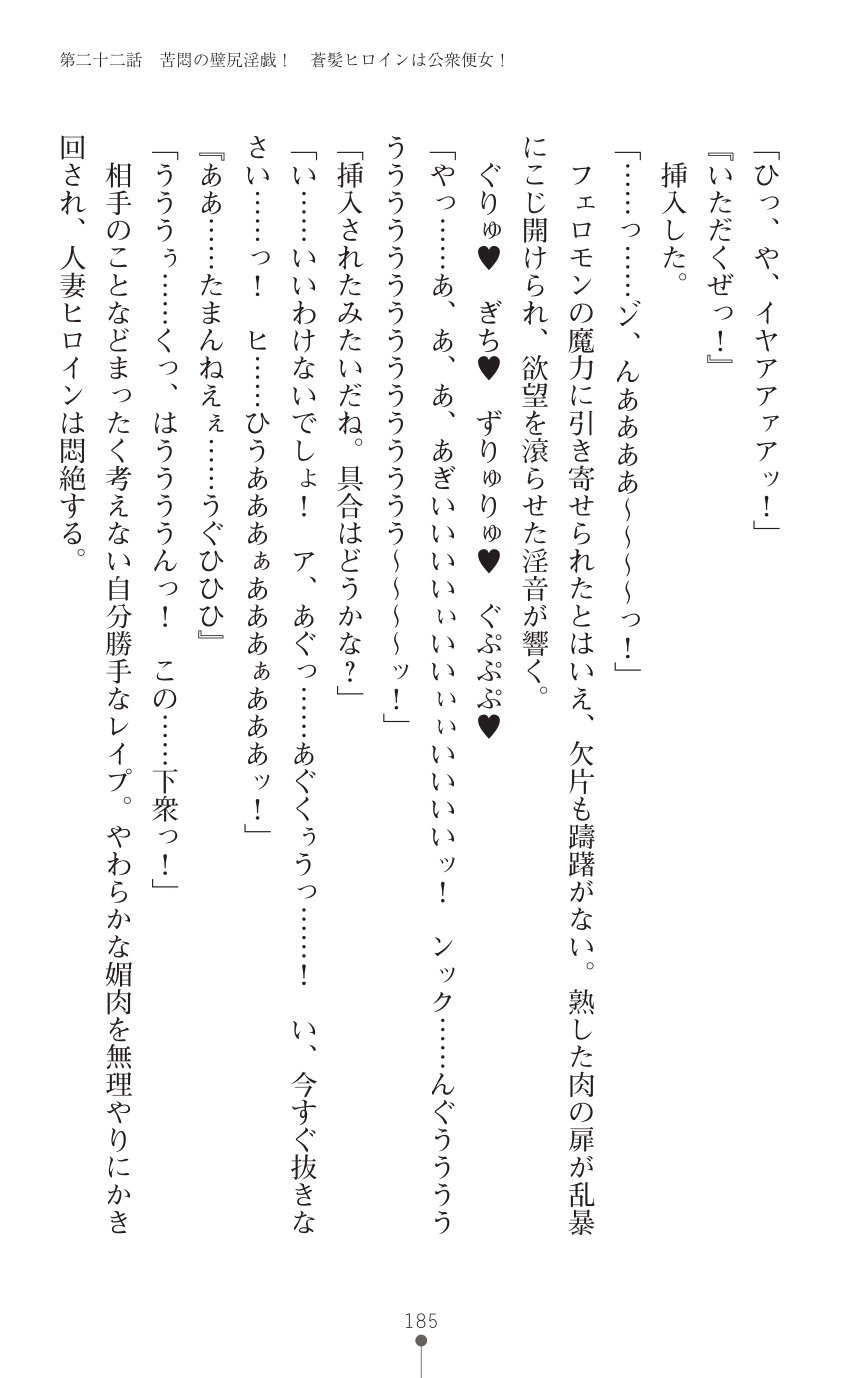 第二十二話　苦悶の壁尻淫戯！　蒼髪ヒロインは公衆便女！
「ひっ、や、イヤアアァアッ！」
『いただくぜっ！』
　挿入した。
「……っ……ゾ、んああああ～～～～っ！」
　フェロモンの魔力に引き寄せられたとはいえ、欠片も躊躇がない。熟した肉の扉が乱暴
にこじ開けられ、欲望を滾らせた淫音が響く。
　ぐりゅ♥　ぎち♥　ずりゅりゅ♥　ぐぷぷぷ♥
「やっ……あ、あ、あ、あぎいいいいぃいいぃぃいいいいッ！　ンック……んぐうううう
うううううううううううううう～～～～ッ！」
「挿入されたみたいだね。具合はどうかな？」
「い……いいわけないでしょ！　ア、あぐっ……あぐくぅうっ……！　い、今すぐ抜きな
さい……っ！　ヒ……ひうあああぁあああぁあああッ！」
『ああ……たまんねえぇ……うぐひひひ』
「うううぅ……くっ、はううううんっ！　この……下衆っ！」
　相手のことなどまったく考えない自分勝手なレイプ。やわらかな媚肉を無理やりにかき
回され、人妻ヒロインは悶絶する。
185